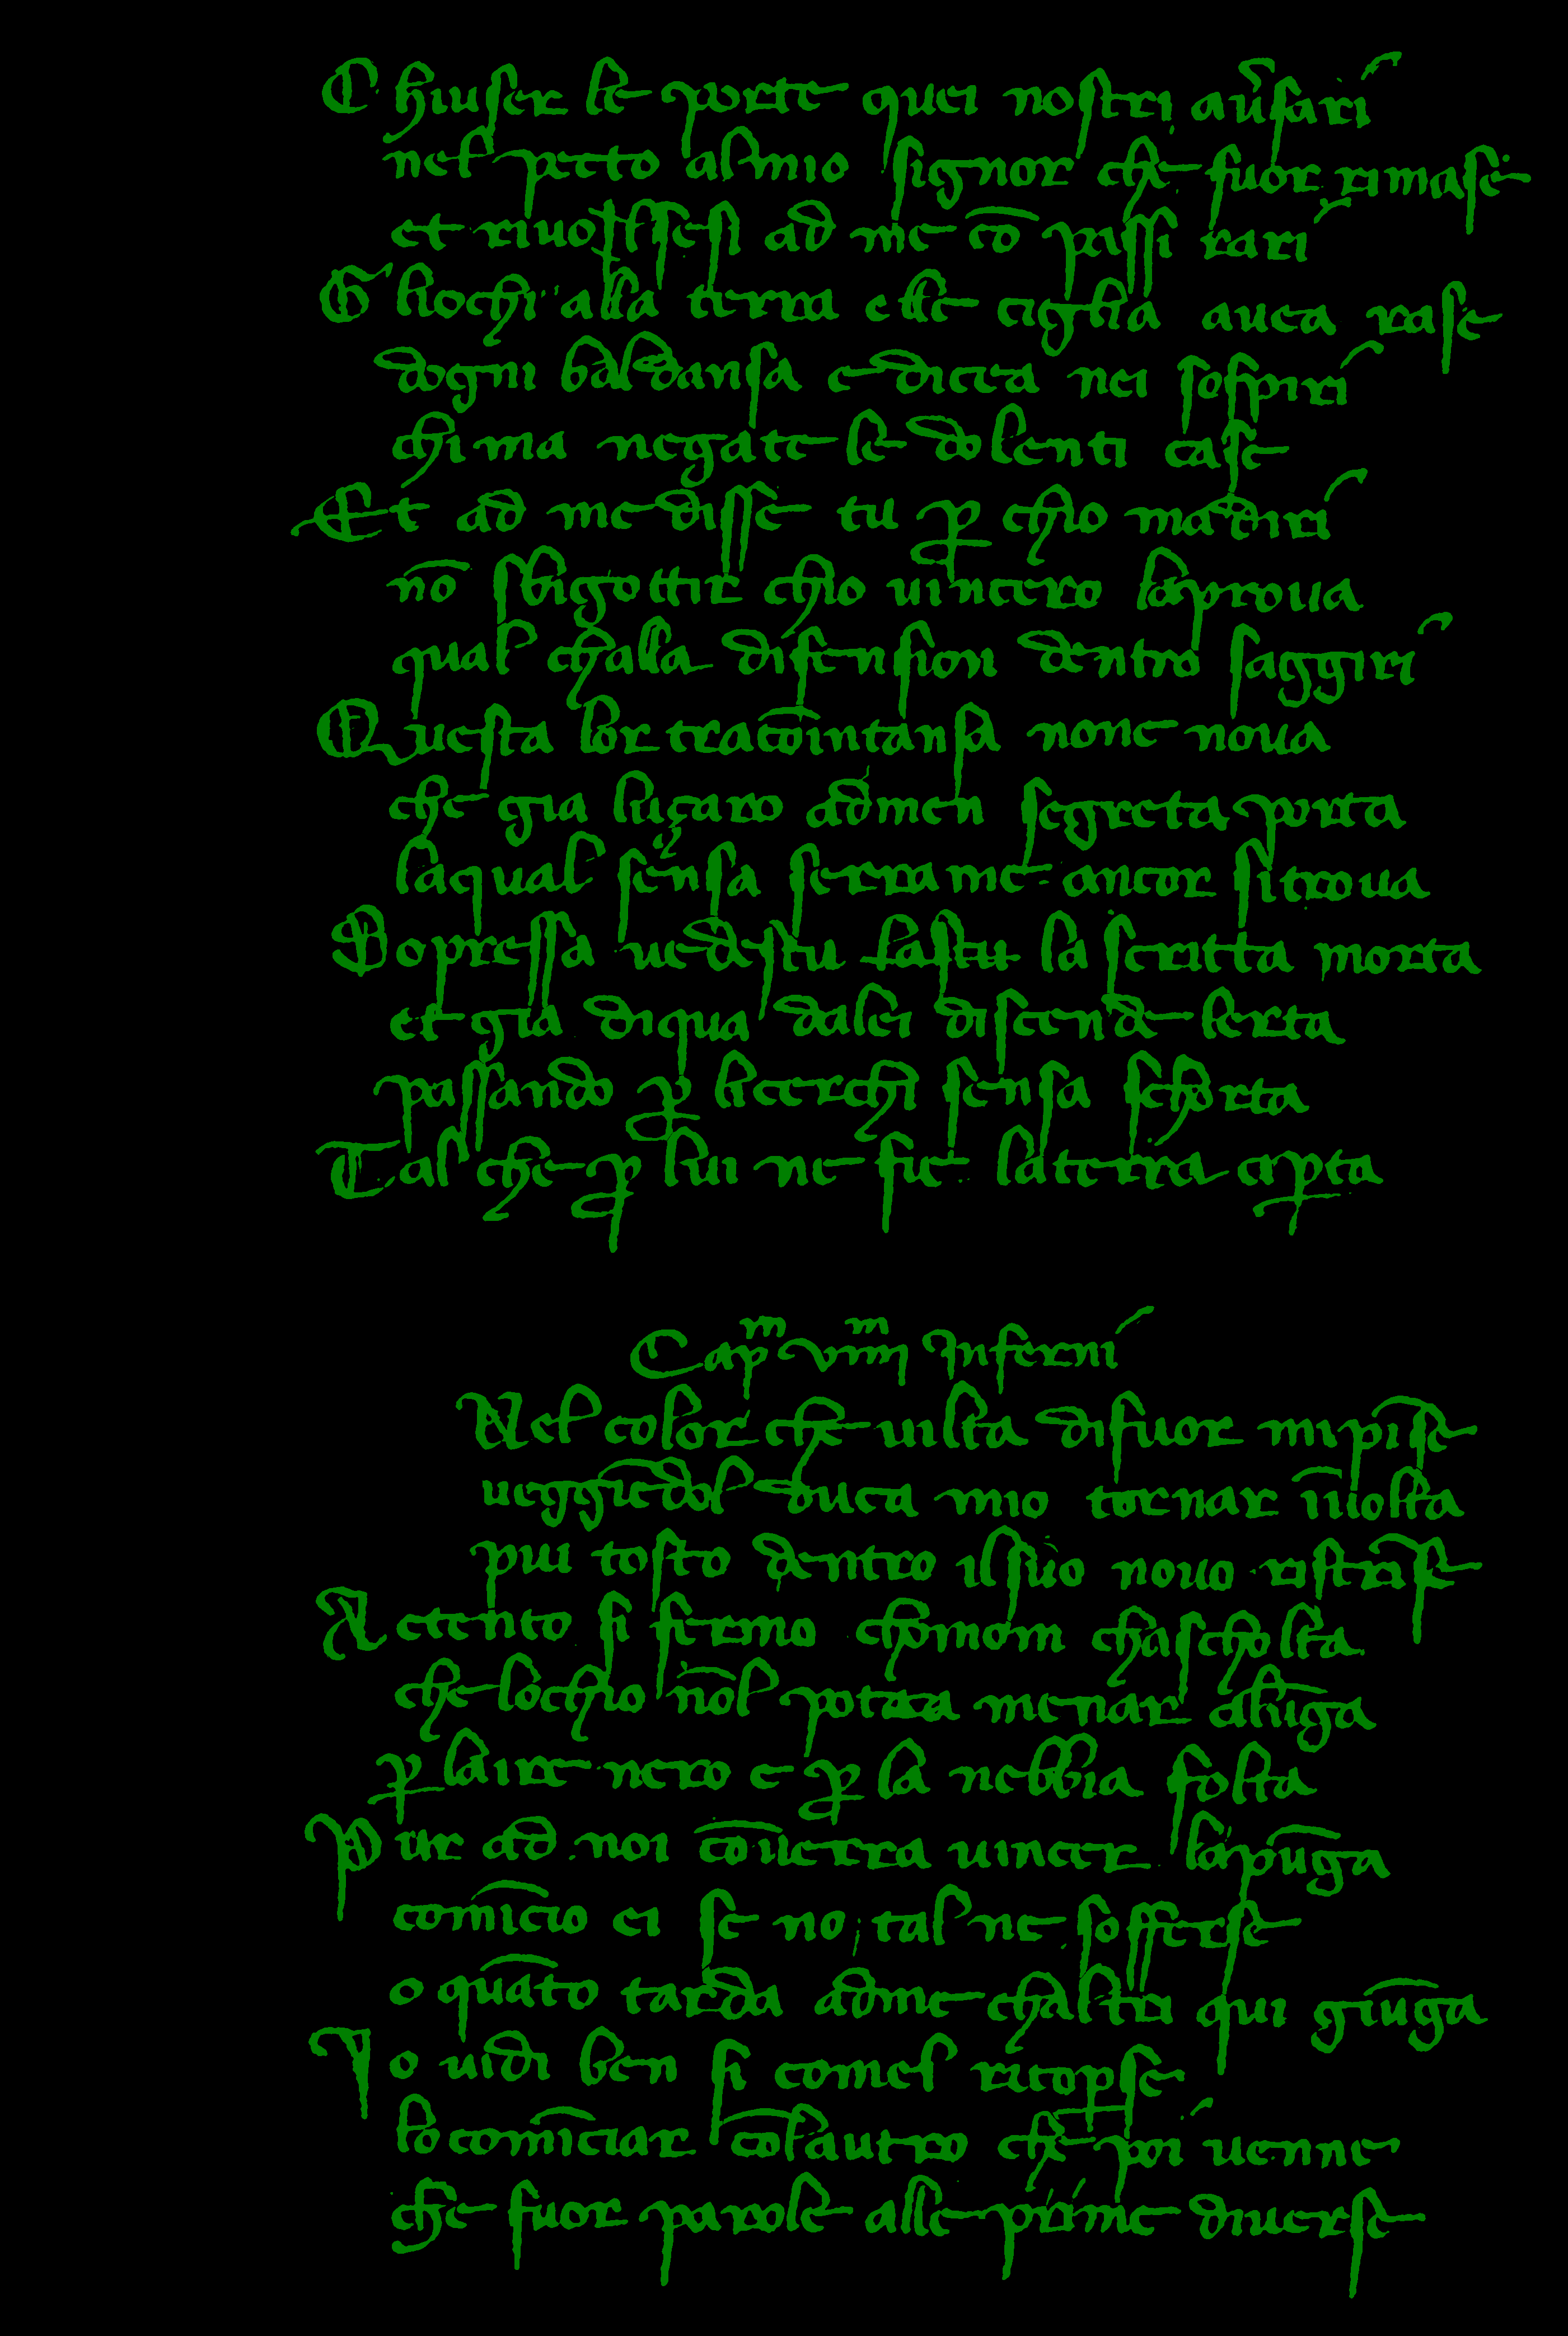 Chiuser le porte quei nostri aũsari
nel pecto al mio signor che fuor rimase
et riuolssesi ad me cō passi rari
Gliochi alla terra elle ciglia auea rase
dogni baldansa e dicea nei sospiri
chi ma negate le dolenti case
Et ad me disse tu ꝑ chio madiri
nō sbigottir chio uincero laproua
qual challa difension dentro saggiri
Questa lor tracōintansa none noua
che gia luçaro admen segreta porta
laqual sensa serrame ancor sitroua
Dopressa uedestu lastu la scritta morta
et gia diqua dalei discende lerta
passando ꝑ licerchi sensa schorta
Tal che ꝑ lui ne fie laterra aꝑta
Capᵐ viiiiᵐ Inferni
Nel color che uilta difuor mi pīse
ueggiēdol duca mio tornar ī uolta
piu tosto dentro il suo nouo ristrīse
Actento si fermo chomom chascholta
che lochio nōl potea menar alūga
ꝑ laire nero e ꝑ la nebbia folta
Pur ad noi cōuerra uincer lapūga
comīcio ei se no tal ne sofferse
o quāto tarda adme chaltri qui giūga
Io uidi ben si comel ricoꝑse
lo comīciar cōlautro che poi uenne
che fuor parole alle prime diuerse